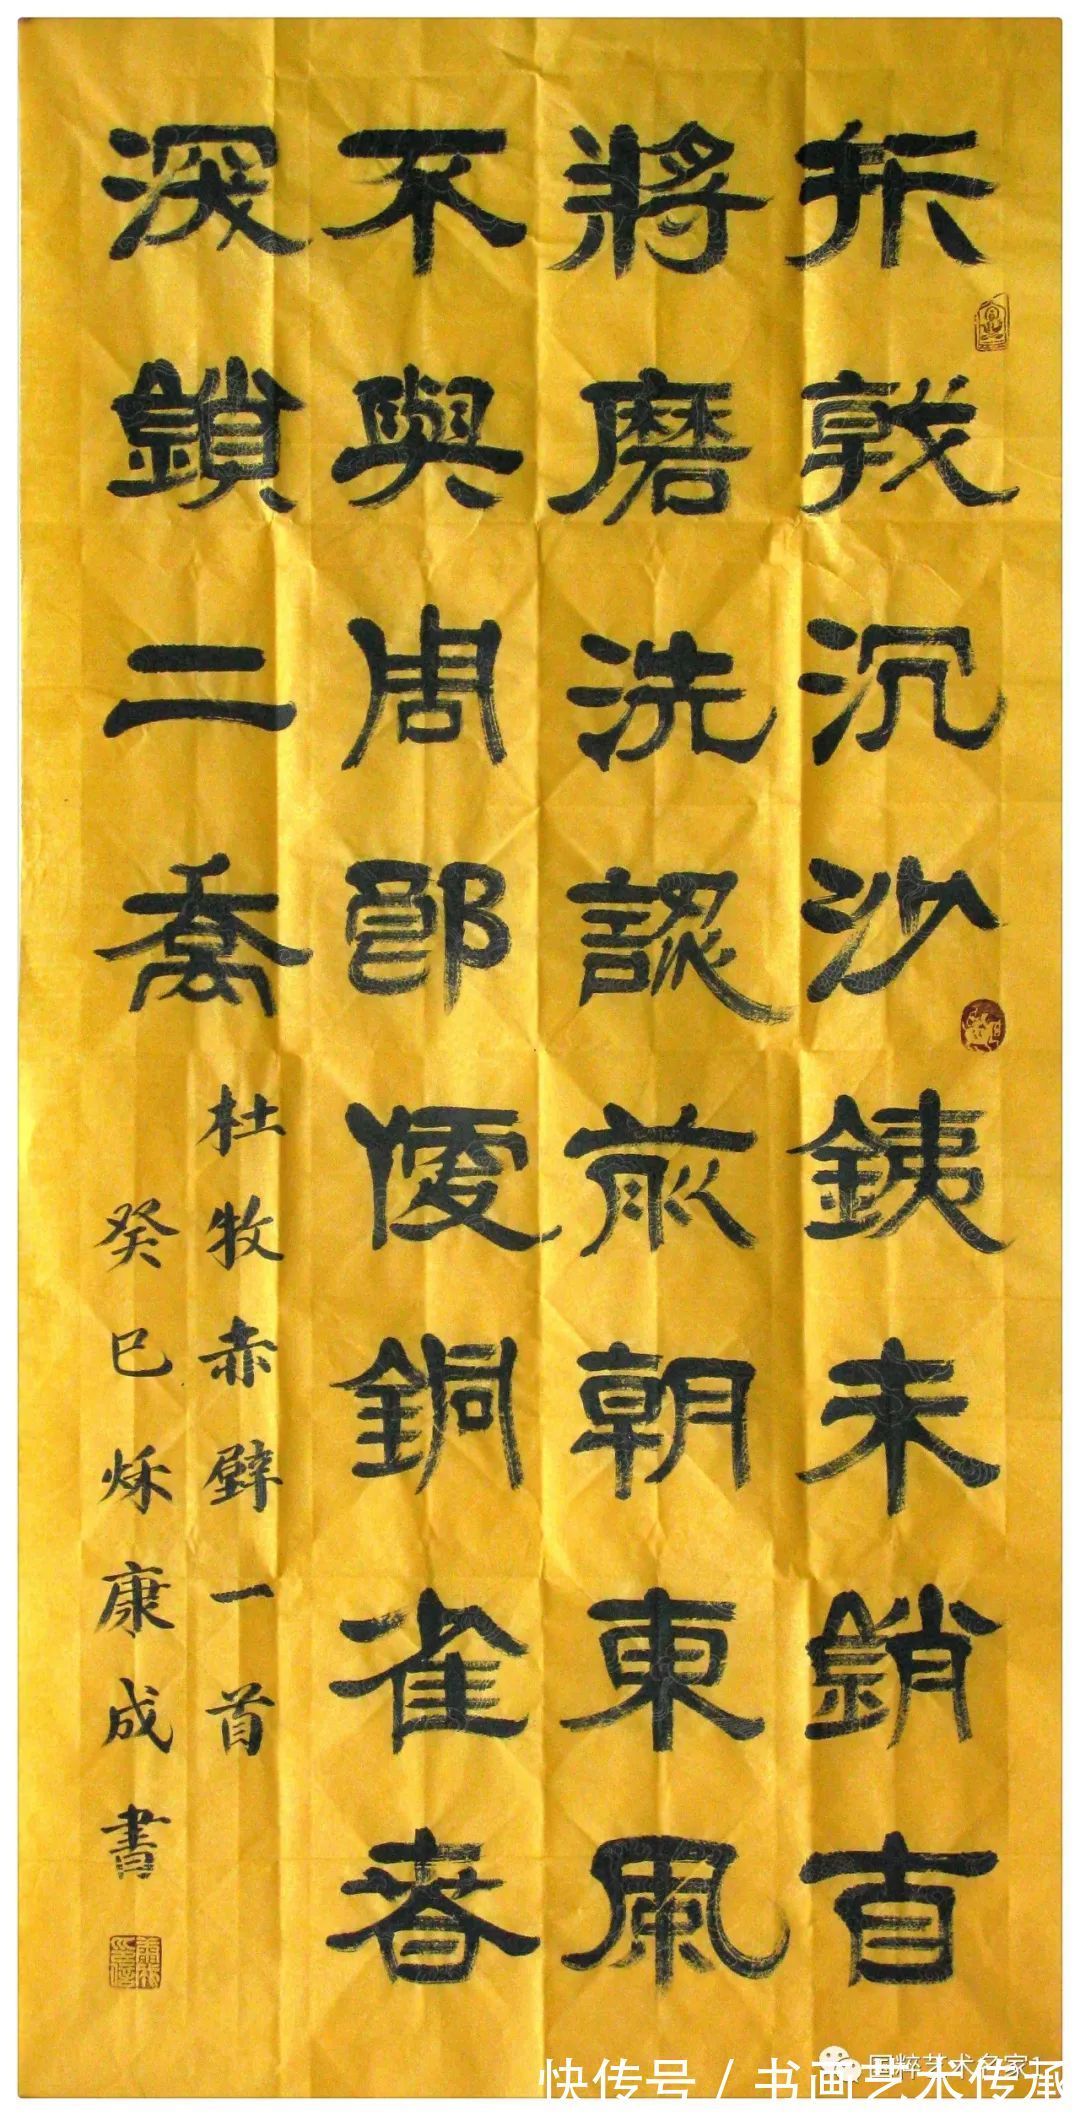 折戟沉沙銕未銷自
將磨洗認前朝東風
不與周郎便銅雀春
深鎖二喬
杜牧赤壁一首
癸巳秌康成書
国粹艺术名家1
快传号 / 书画艺术传承